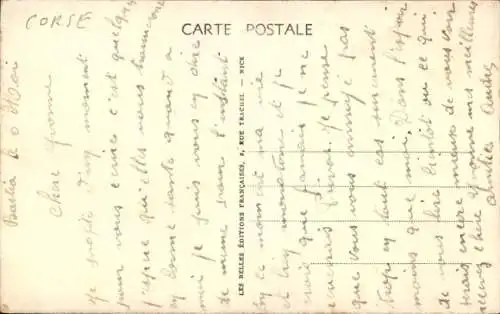 CORSE
CARTE POSTALE
LES BELLES ÉDITIONS FRANÇAISES, 8, RUE TRACHEL - NICE
Bastia le 10 Mai
Chère Yvonne
Je profite d'un moment
pour vous écrire c'est quelques
j'espère qu'elles vous trouverons
en bonne santé quand a
moi je suis vous en dire
de même pour l'instant
en ce moment ma vie
est bien monotone et je
crois que jamais je ne
Je pense
que vous vous ennuyé pas
trop en tout cas surement
moins que moi. Dans l'espoir
de vous lire bientôt ou ce qui
serais encore mieux de vous voir
recevez chère Yvonne mes meilleures
amitiés André